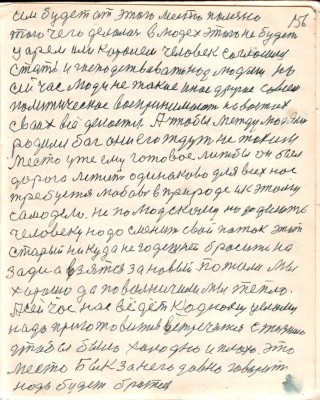 им будет от этого места полезно 156
того чего делалая в людех этого не будет
царем или королем человек согласился
стать и господствовать над людьми но
сейчас люди не такие иные другие совсем
политическое воспринимают на востоких
своих всё делается. А чтобы между людьми
родился бог они его ждут не таким
место уже ему готовое лижбы он был
дорога летит одинаково для всех нас
требуется любовь в природе и к этому
само дело. не по людскому но родились
человеку надо сменить свой поток этот
старый никуда не годещий бросить на
зади а взятся за новый пошли мы
хорошо да получили мы тепло.
А сейчас нас ведёт к одному целому
надо приготовится встречатся с таким
чтобы было холодно и плохо. это
место бык за него давно говорит
надь будет братся